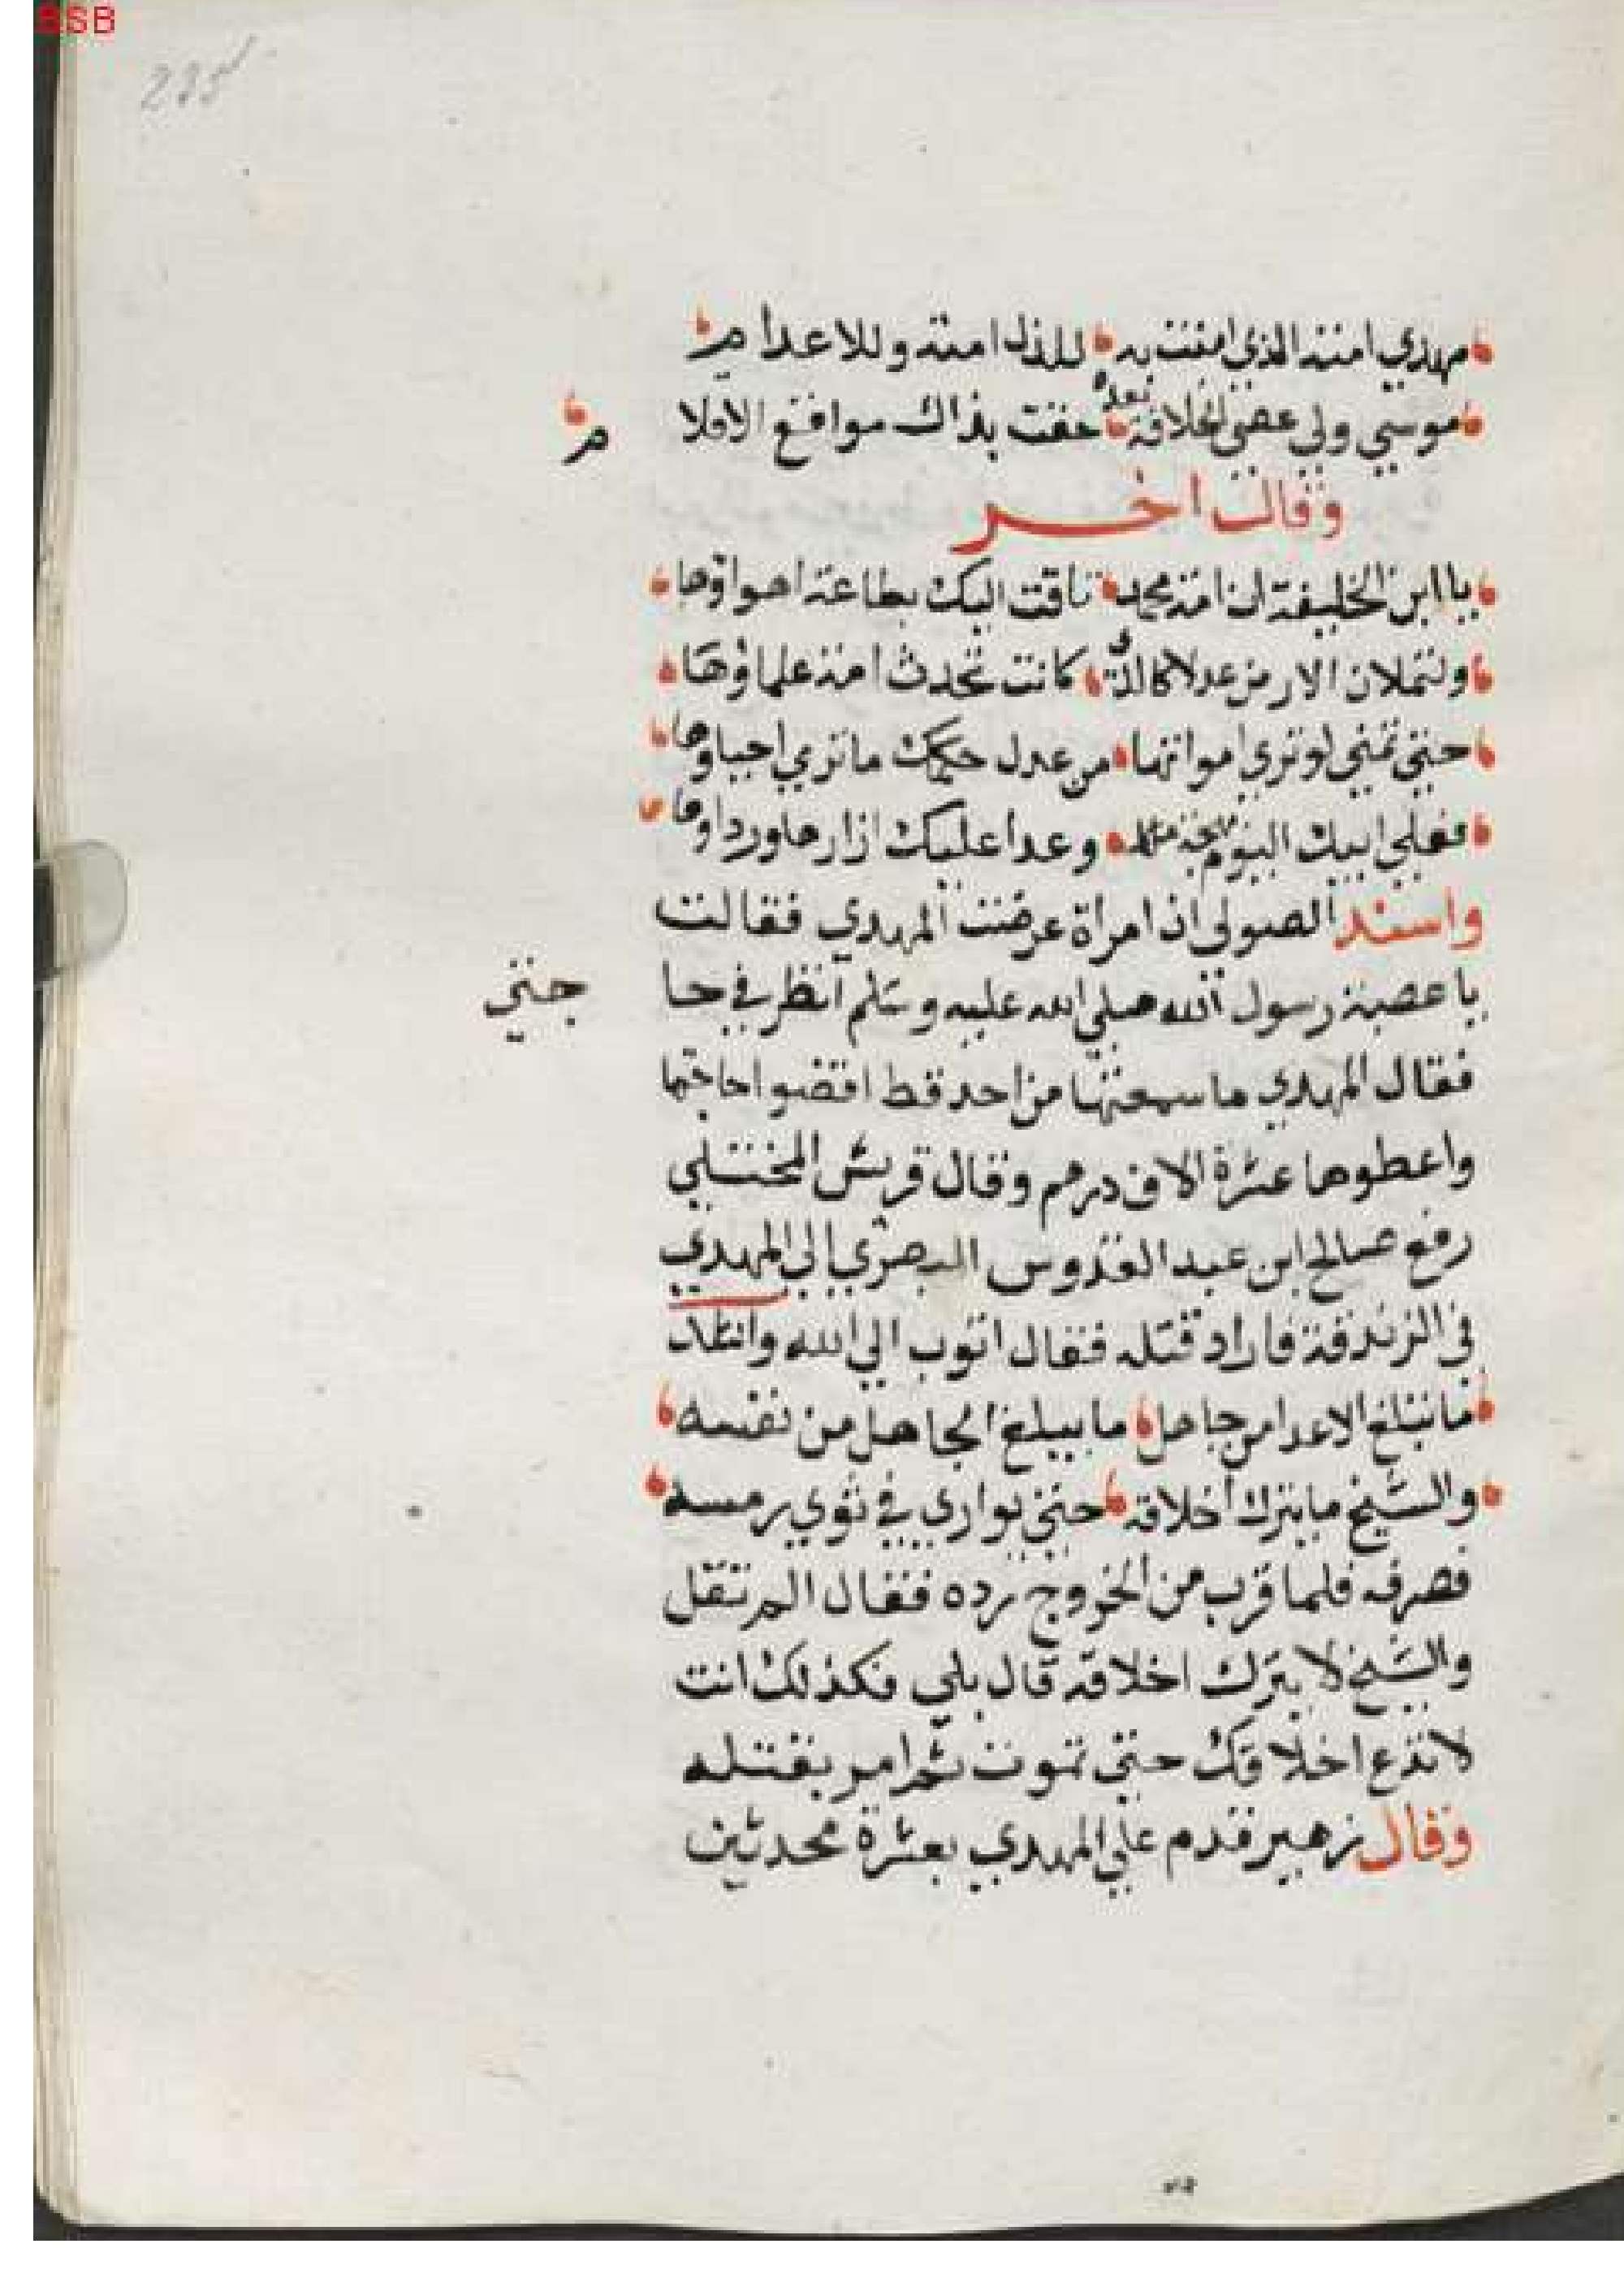 BSB
235
مهدي امته الذي امنت به للذل امنة وللاعدام
موسي ولي عصي الخلافة بعده حفت بذاك مواقع الاقلام
وقال اخر
يا ابن الخليفة ان امة محمد تاقت اليك بطاعة اهواوها
ولتملان الارض عدلا كالذي كانت تحدث امة علماوها
حتي تمني لو تري امواتها من عدل حكمك ما تري احياوها
فعلي ابيك اليوم بهجة ملكه وعدا عليك ازارها ورداوها
واسند الصولي ان امراة عرضت المهدي فقالت
يا عصبة رسول الله صلي الله عليه وسلم انظر في حا جتي
فقال المهدي ما سمعتها من احد قط اقضوا حاجتها
واعطوها عشرة الاف درهم وقال قريش الختلي
رفع صالح ابن عبد القدوس البصري الي المهدي
في الزندقة فاراد قتله فقال اتوب الي الله وانشد
ما تبلغ الاعدا من جاهل ما يبلغ الجاهل من نفسه
والشيخ ما يترك اخلاقه حتي يواري في ثوي رمسه
فصرفه فلما قرب من الخروج رده فقال الم تقل
والشيخ لا يترك اخلاقه قال بلي فكذلك انت
لا تدع اخلاقك حتي تموت ثم امر بقتله
وقال زهير قدم علي المهدي بعشرة محدثين